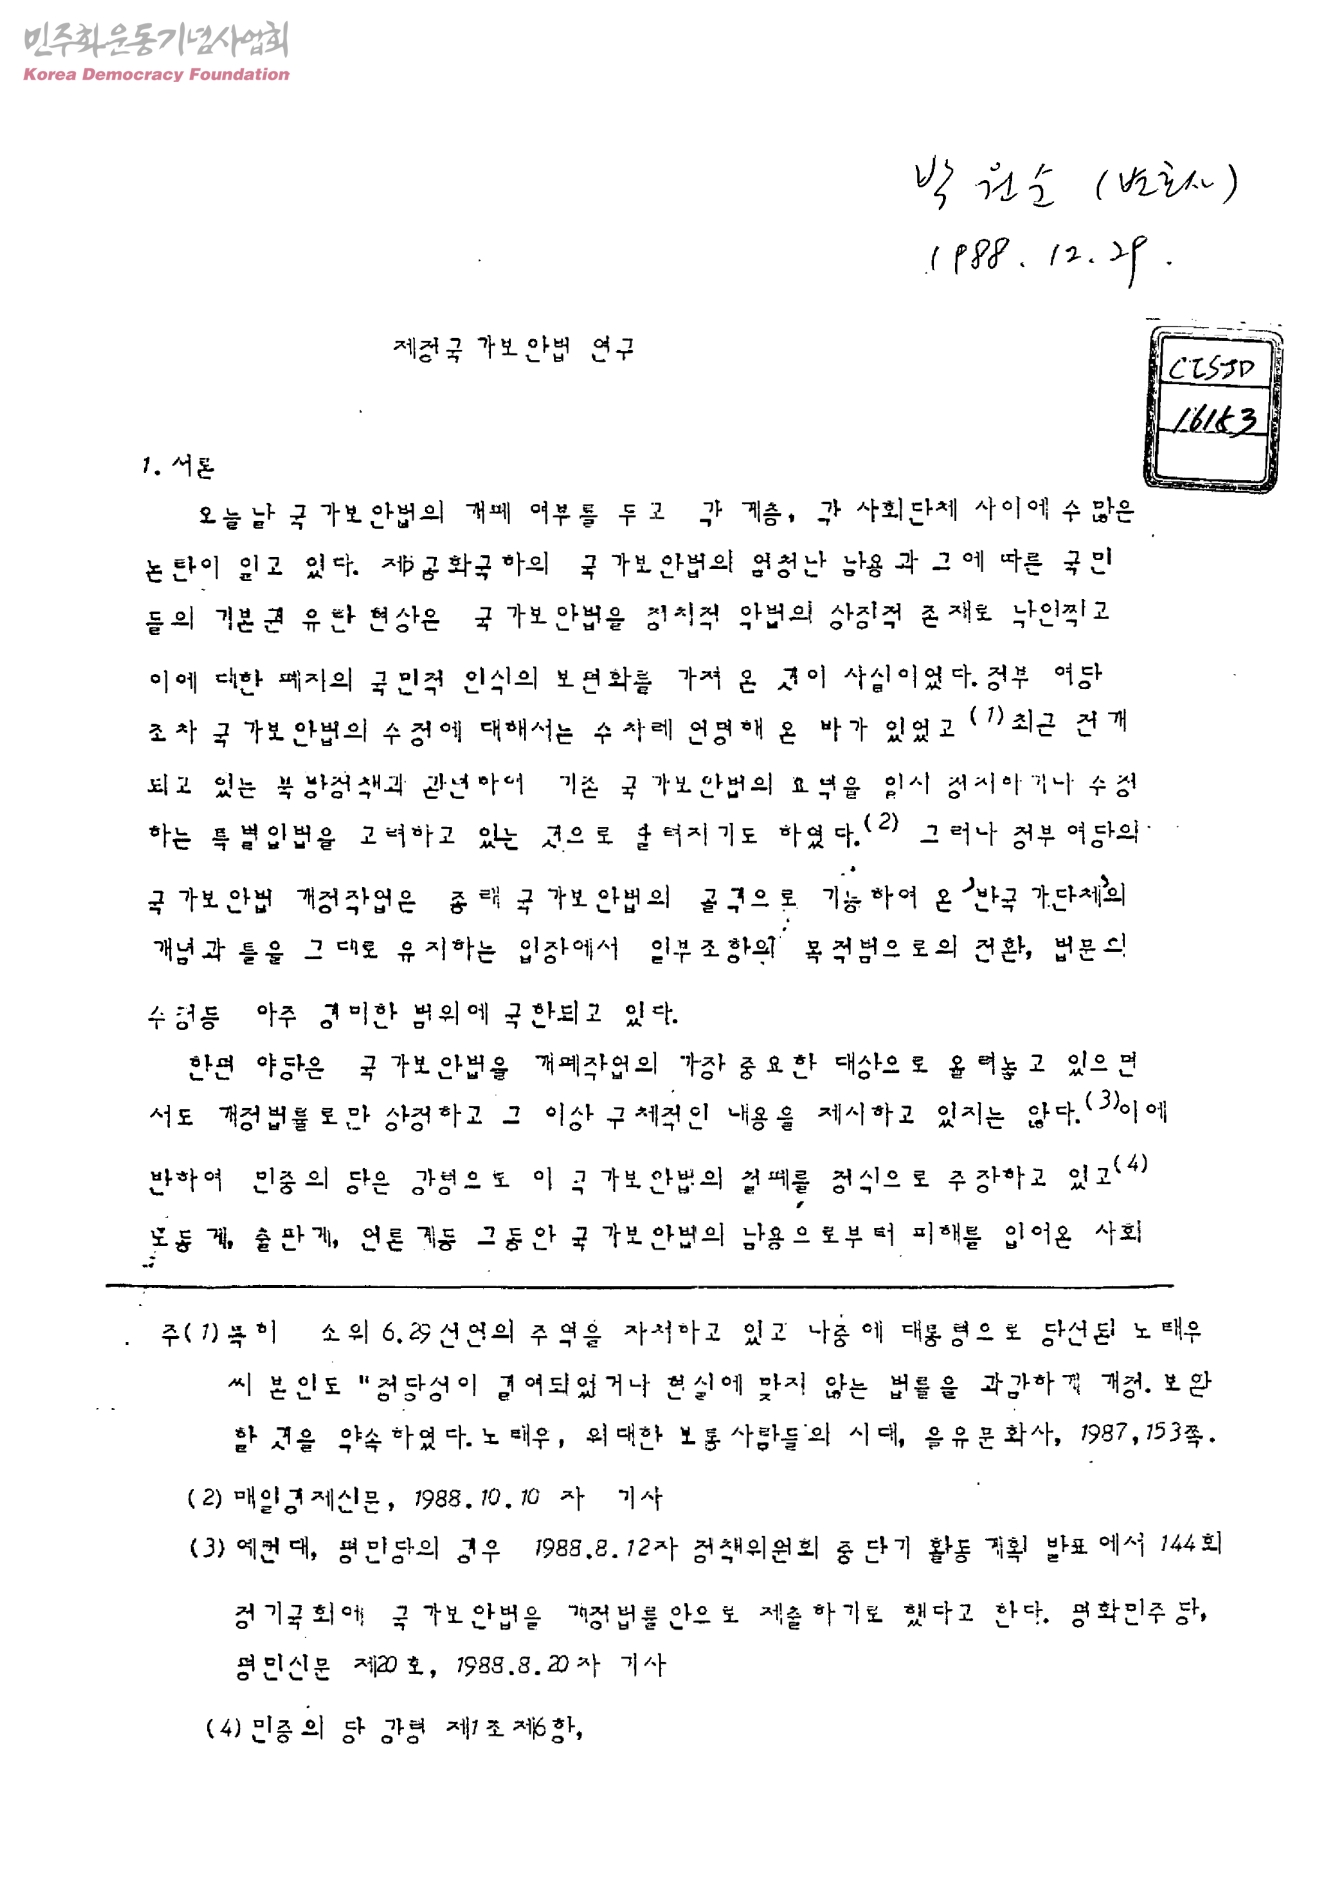 민주화운동기념사업회
Korea Democracy Foundation
박원순 (변호사)
1988. 12. 29.
제정국가보안법 연구
CISJD
16183
1. 서론
오늘날 국가보안법의 개폐 여부를 두고 각 계층, 각 사회단체 사이에 수많은
논란이 일고 있다. 제5공화국하의 국가보안법의 엄청난 남용과 그에 따른 국민
들의 기본권 유한 현상은 국가보안법을 정치적 악법의 상징적 존재로 낙인찍고
이에 대한 폐지의 국민적 인식의 보편화를 가져 온 것이 사실이었다. 정부 여당
조차 국가보안법의 수정에 대해서는 수차례 언명해 온 바가 있었고(1) 최근 전개
되고 있는 북방정책과 관련하여 기존 국가보안법의 효력을 일시 정지하거나 수정
하는 특별입법을 고려하고 있는 것으로 알려지기도 하였다.(2) 그러나 정부여당의
국가보안법 개정작업은 종래 국가보안법의 골격으로 기능하여 온 '반국가단체'의
개념과 틀을 그대로 유지하는 입장에서 일부조항의 목적범으로의 전환, 법문의
수정등 아주 경미한 범위에 국한되고 있다.
한편 야당은 국가보안법을 개폐작업의 가장 중요한 대상으로 올려놓고 있으면
서도 개정법률로만 상정하고 그 이상 구체적인 내용을 제시하고 있지는 않다.(3)이에
반하여 민중의 당은 강령으로 이 국가보안법의 철폐를 정식으로 주장하고 있고(4)
노동계, 출판계, 언론계등 그동안 국가보안법의 남용으로부터 피해를 입어온 사회
주(1)특히 소위 6.29선언의 주역을 자처하고 있고 나중에 대통령으로 당선된 노태우
씨 본인도 "정당성이 결여되었거나 현실에 맞지 않는 법률을 과감하게 개정.보완
할 것을 약속하였다. 노태우, 위대한 보통사람들의 시대, 을유문화사, 1987,153쪽.
(2)매일경제신문, 1988.10.10 자 기사
(3)예컨대, 평민당의 경우 1988.8.12자 정책위원회 중단기 활동계획 발표에서 144회
정기국회에 국가보안법을 개정법률안으로 제출하기로 했다고 한다. 평화민주당,
평민신문 제20호, 1988.8.20자 기사
(4)민중의 당 강령 제1조제6항,